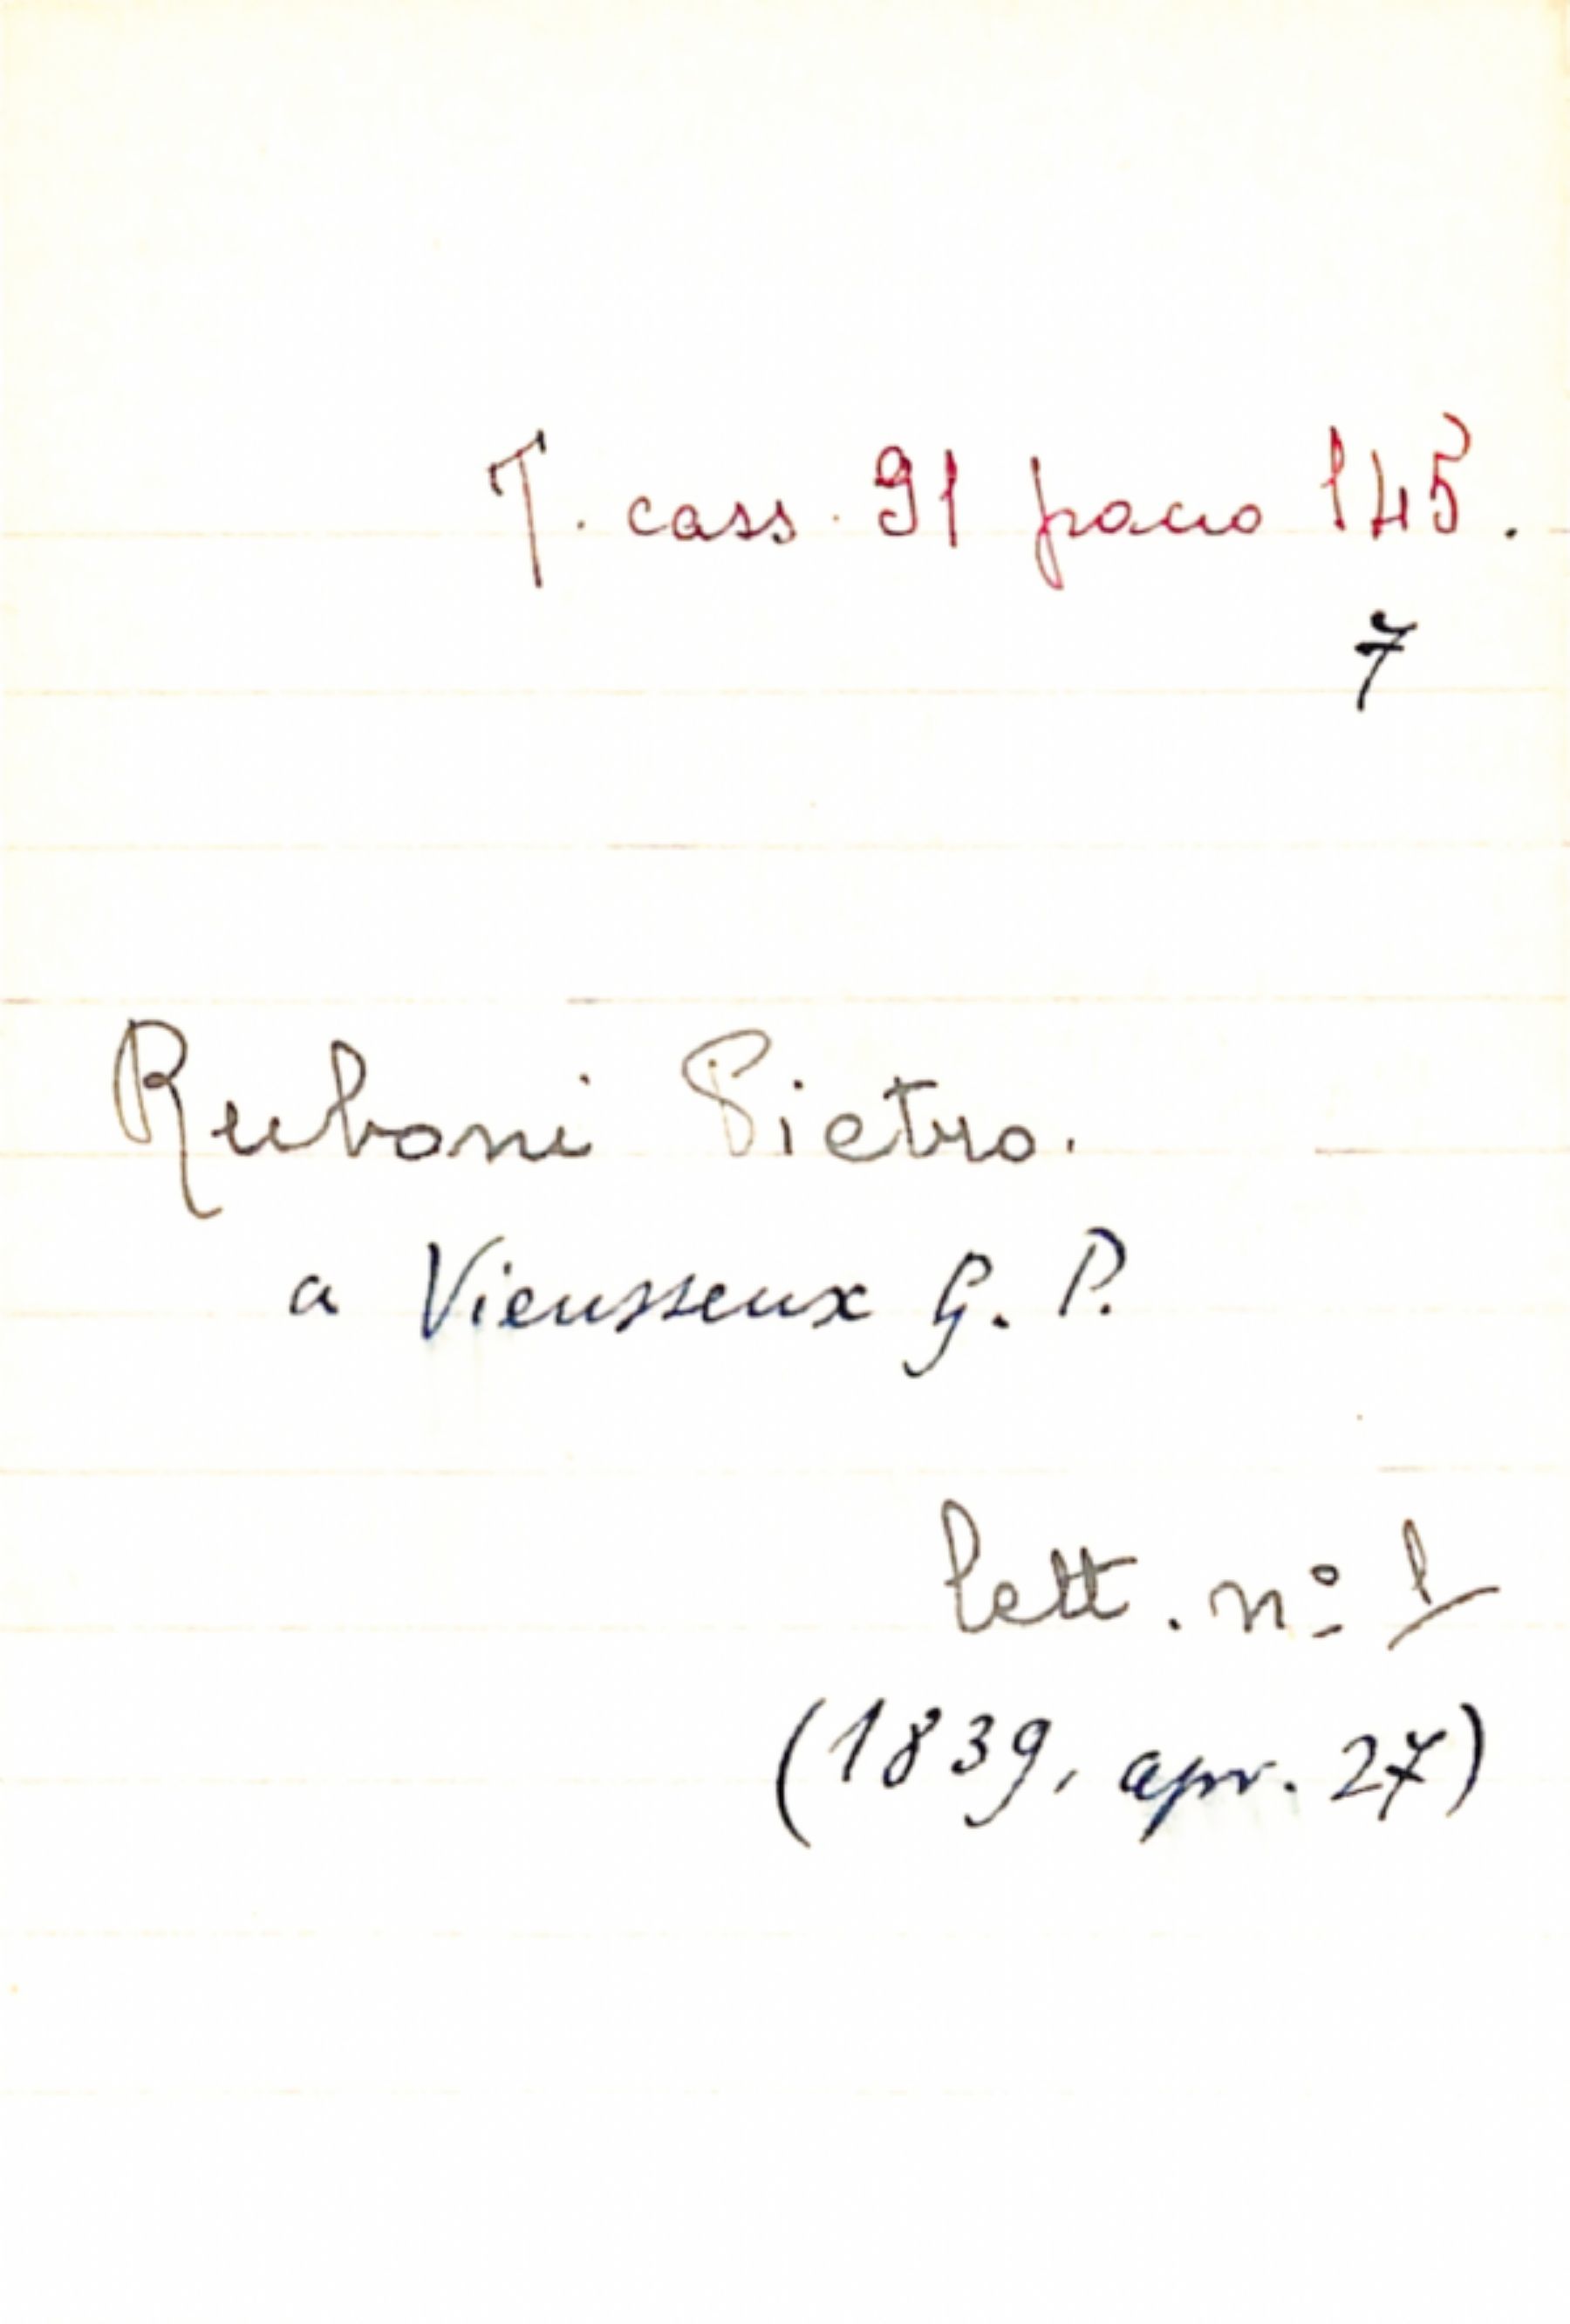 T. cass. 91 pacco 145.
7
Ruboni Pietro.
a Vieusseux G. P.
lett. nº 1
(1839, apr. 27)